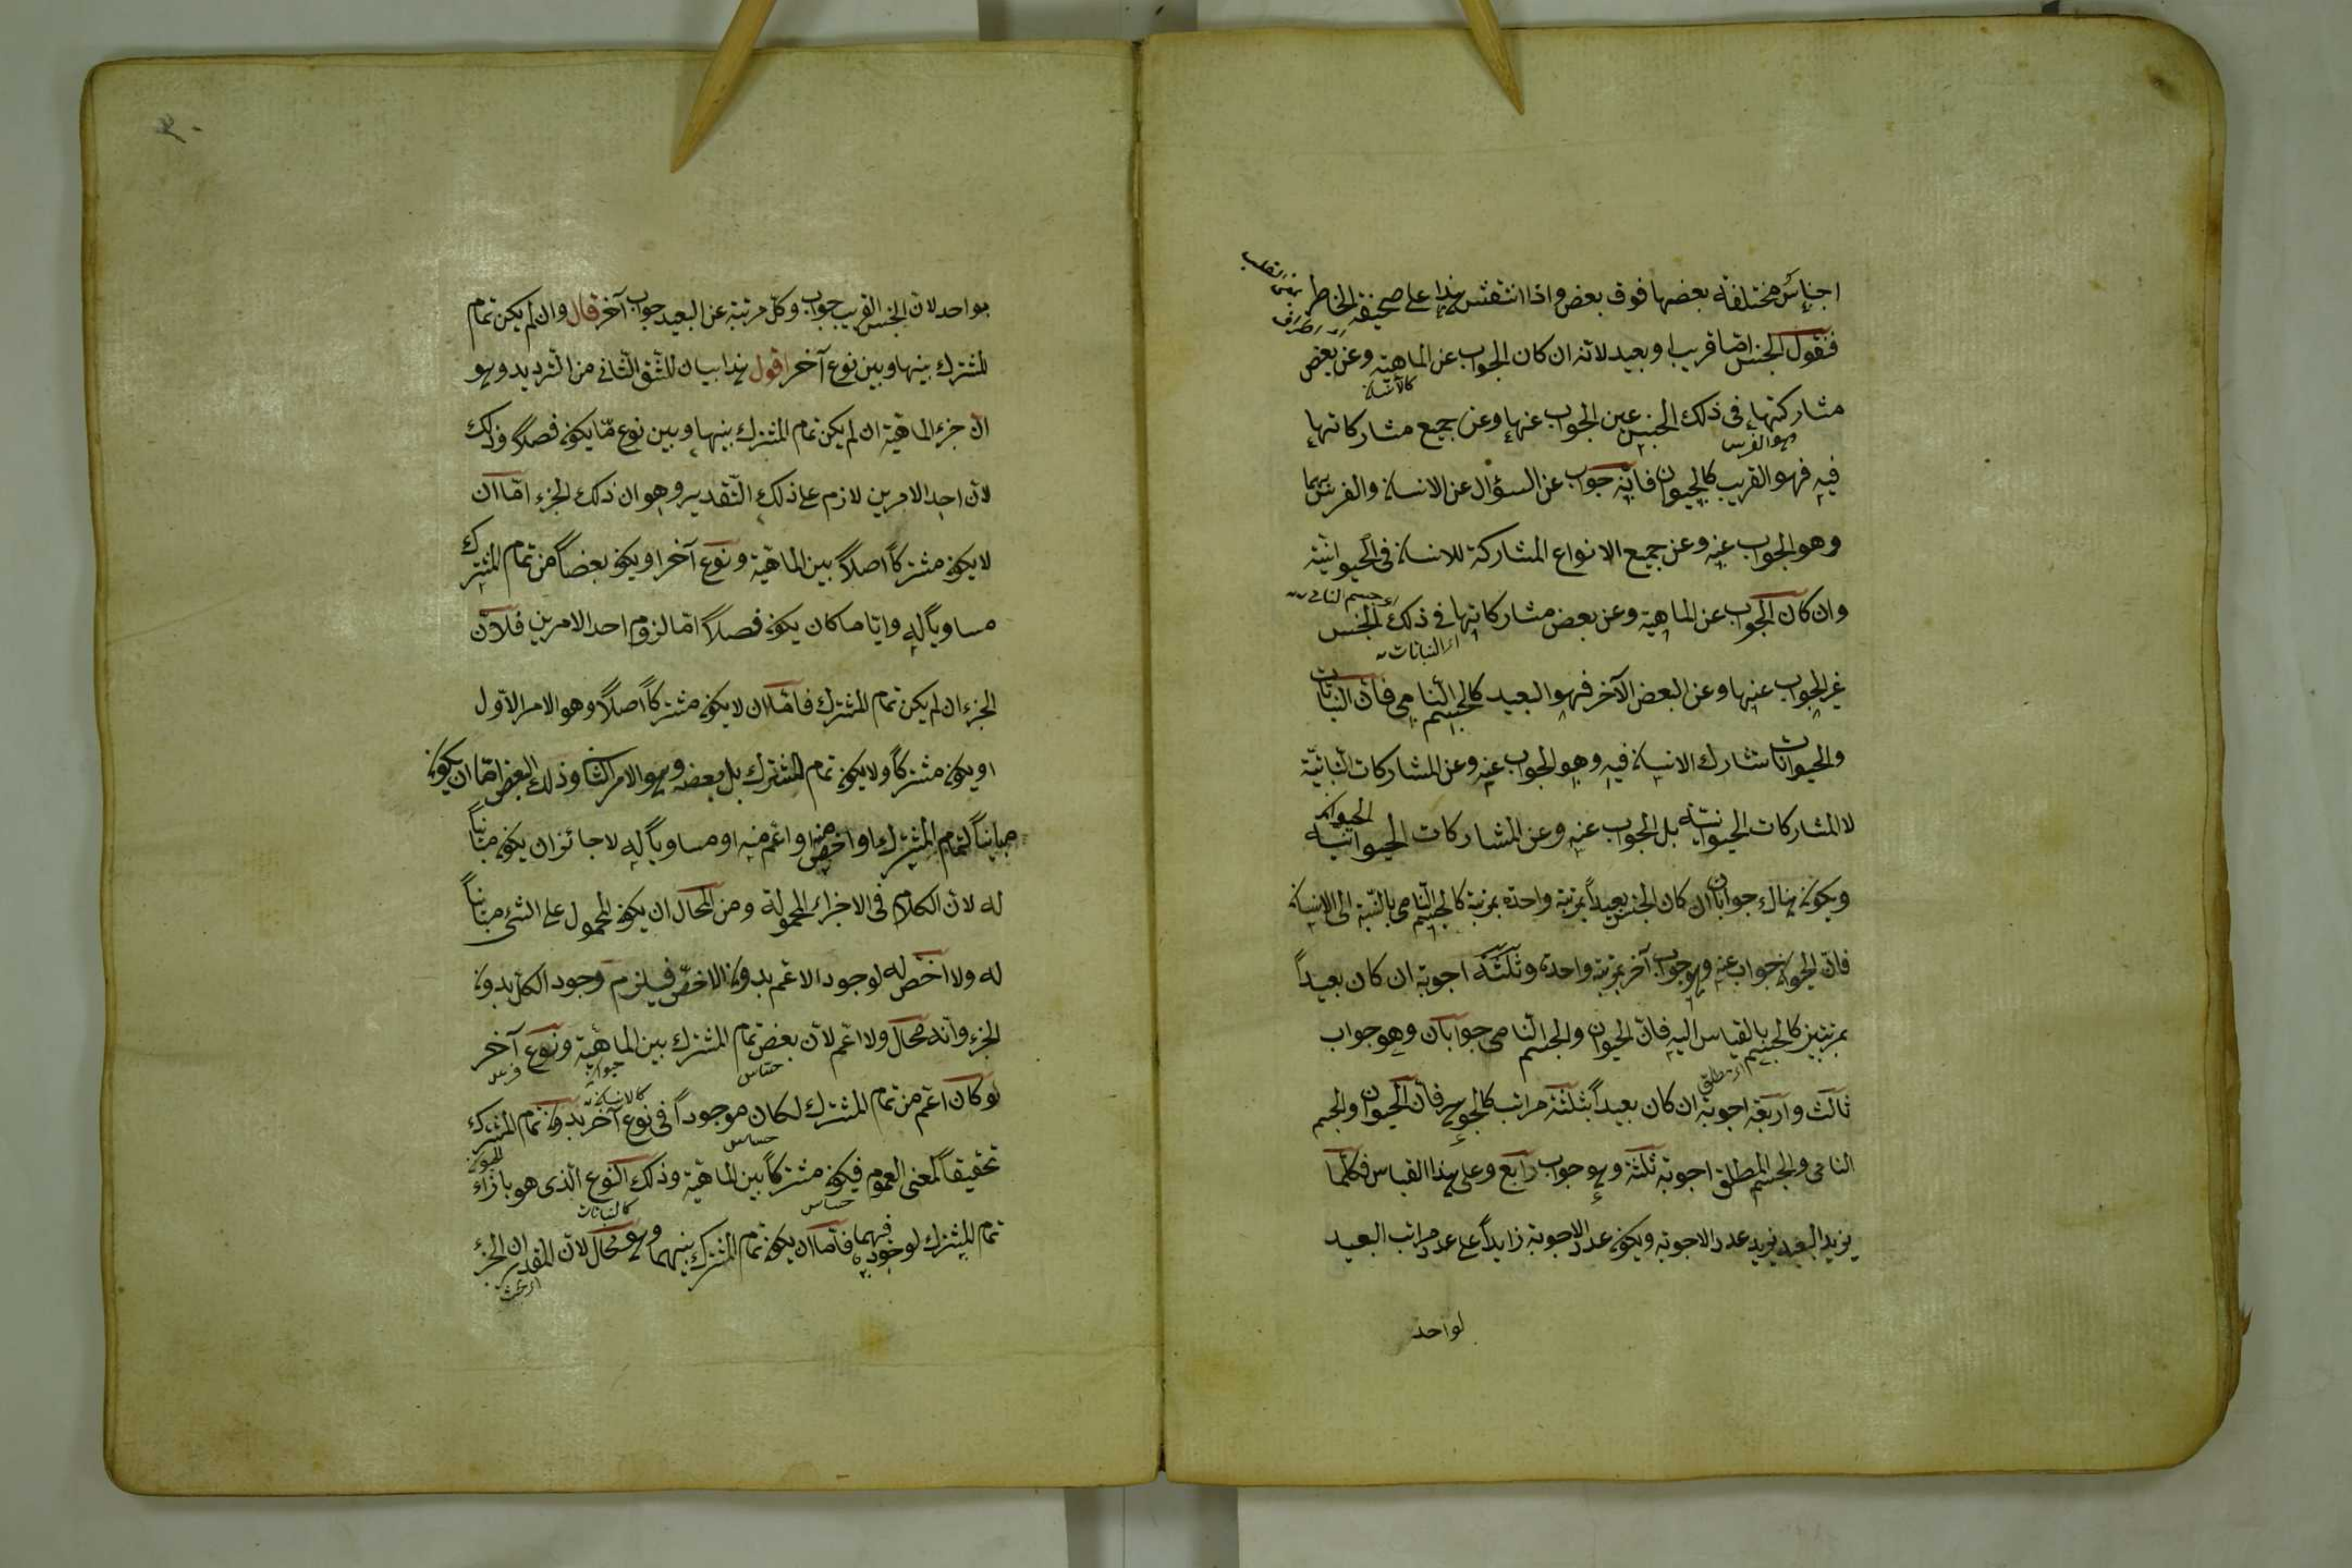 اجناس مختلفة بعضها فوق بعض واذا انتقش هذا على صحيفة الخاطر
فنقول الجنس اما قريب او بعيد لانه ان كان الجواب عن الماهية وعن بعض
مشاركتها في ذلك الجنس عين الجواب عنها وعن جميع مشاركاتها
فيه فهو القريب كالحيوان فانه جواب عن السؤال عن الانسان والفرس
وهو الجواب عنه وعن جميع الانواع المشاركة للانسان في الحيوانية
وان كان الجواب عن الماهية وعن بعض مشاركاتها في ذلك الجنس
غير الجواب عنها وعن البعض الآخر فهو البعيد كالجسم النامي فان النباتات
والحيوانات تشارك الانسان فيه وهو الجواب عنه وعن المشاركات النباتية
لا المشاركات الحيوانية بل الجواب عنه وعن المشاركات الحيوانية الحيوان
ويكون هناك جوابان ان كان الجنس بعيداً بمرتبة واحدة كالجسم النامي بالنسبة الى الانسان
فان الحيوان جواب عنه وهو جواب آخر بمرتبة واحدة وثلثة اجوبة ان كان بعيداً
بمرتبتين كالجسم بالقياس اليه فان الحيوان والجسم النامي جوابان وهو جواب
ثالث واربعة اجوبة ان كان بعيداً بثلثة مراتب كالجوهر فان الحيوان والجسم
النامي والجسم المطلق اجوبة ثلثة وهو جواب رابع وعلى هذا القياس فكلما
يزيد البعيد يزيد عدد الاجوبة ويكون عدد الاجوبة زايداً على عدد مراتب البعيد
لواحد
بواحد لان الجنس القريب جواب وكل مرتبة عن البعيد جواب آخر قال وان لم يكن تمام
المشترك بينها وبين نوع آخر اقول هذا بيان للشق الثاني من الترديد وهو
ان جزء الماهية ان لم يكن تمام المشترك بينها وبين نوع مّا يكون فصلاً وذلك
لان احد الامرين لازم على ذلك التقدير وهو ان ذلك الجزء اما ان
لا يكون مشتركاً اصلاً بين الماهية ونوع آخر او يكون بعضاً من تمام المشترك
مساوياً له وايّا ما كان يكون فصلاً اما لزوم احد الامرين فلان
الجزء ان لم يكن تمام المشترك فاما ان لا يكون مشتركاً اصلاً وهو الامر الاول
او يكون مشتركاً ولا يكون تمام المشترك بل بعضه وهو الامر الثاني وذلك البعض اما ان يكون
مبايناً لتمام المشترك او اخص منه او اعم منه او مساوياً له لا جائز ان يكون مبايناً
له لان الكلام في الاجزاء المحمولة ومن المحال ان يكون المحمول على الشئ مبايناً
له ولا اخص له لوجود الاعم بدون الاخص فيلزم وجود الكل بدون
الجزء وانه محال ولا اعم لان بعض تمام المشترك بين الماهية ونوع آخر
لو كان اعم من تمام المشترك لكان موجوداً في نوع آخر بدون تمام المشترك
تحقيقاً لمعنى العموم فيكون مشتركاً بين الماهية وذلك النوع الذي هو بازاء
تمام المشترك لوجوده فيهما فاما ان يكون تمام المشترك بينهما وهو محال لان المقدر ان الجزء